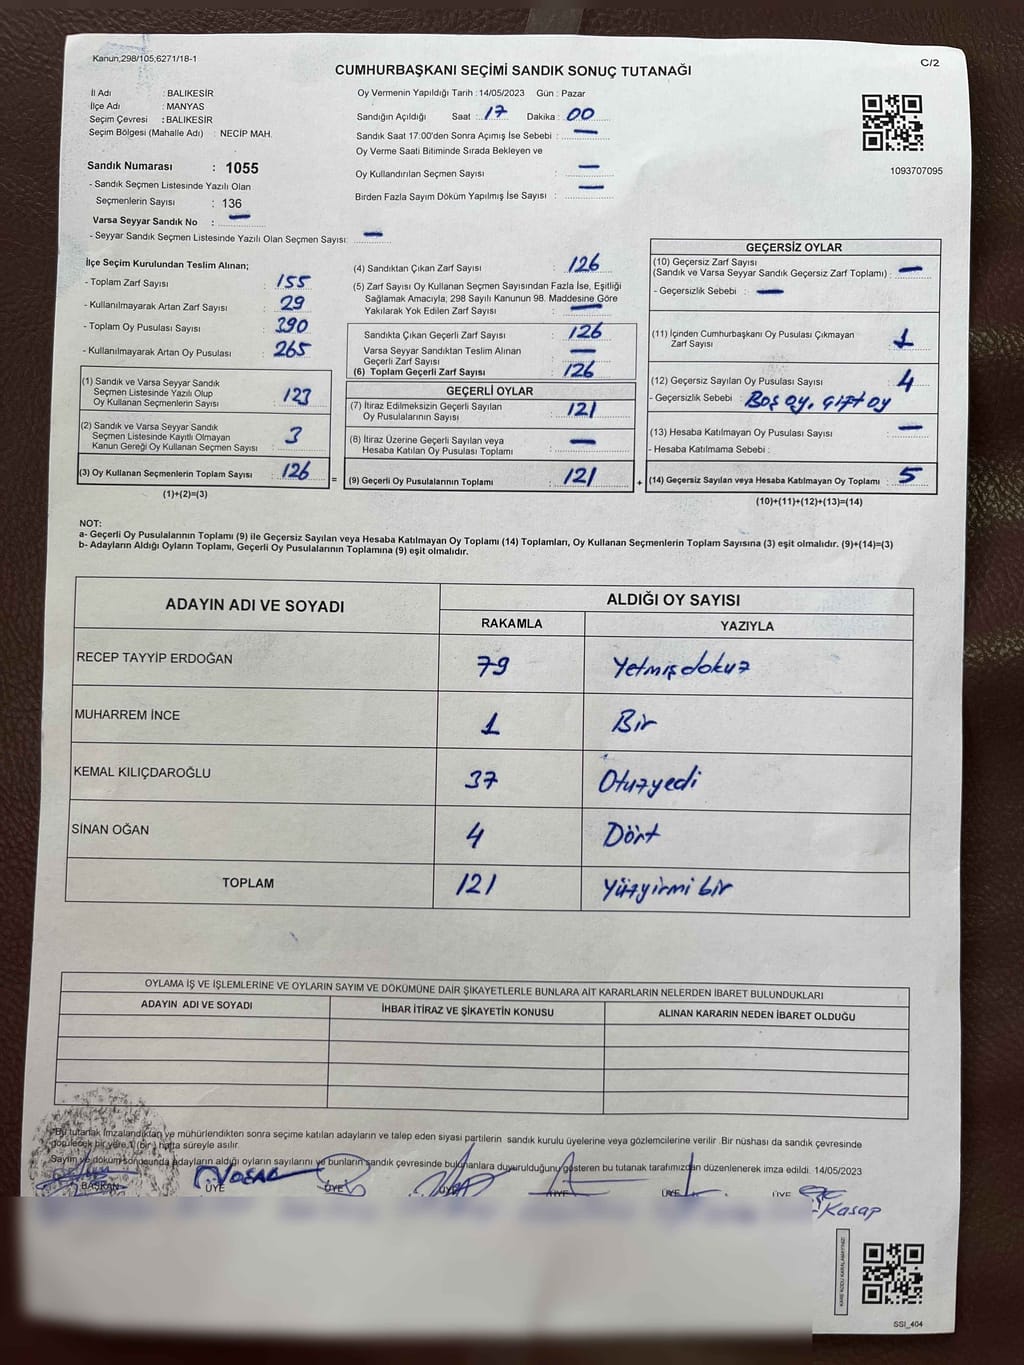 Kanun;298/105;6271/18-1
C/2
CUMHURBAŞKANI SEÇİMİ SANDIK SONUÇ TUTANAĞI
İl Adı : BALIKESİR
İlçe Adı : MANYAS
Seçim Çevresi : BALIKESİR
Seçim Bölgesi (Mahalle Adı) : NECİP MAH.
Sandık Numarası : 1055
- Sandık Seçmen Listesinde Yazılı Olan
Seçmenlerin Sayısı : 136
Varsa Seyyar Sandık No : —
- Seyyar Sandık Seçmen Listesinde Yazılı Olan Seçmen Sayısı: —
Oy Vermenin Yapıldığı Tarih : 14/05/2023 Gün : Pazar
Sandığın Açıldığı Saat : 17 Dakika : 00
Sandık Saat 17:00'den Sonra Açımış İse Sebebi : —
Oy Verme Saati Bitiminde Sırada Bekleyen ve
Oy Kullandırılan Seçmen Sayısı : —
Birden Fazla Sayım Döküm Yapılmış İse Sayısı : —
1093707095
İlçe Seçim Kurulundan Teslim Alınan;
- Toplam Zarf Sayısı : 155
- Kullanılmayarak Artan Zarf Sayısı : 29
- Toplam Oy Pusulası Sayısı : 390
- Kullanılmayarak Artan Oy Pusulası : 265
(1) Sandık ve Varsa Seyyar Sandık
Seçmen Listesinde Yazılı Olup
Oy Kullanan Seçmenlerin Sayısı : 123
(2) Sandık ve Varsa Seyyar Sandık
Seçmen Listesinde Kayıtlı Olmayan
Kanun Gereği Oy Kullanan Seçmen Sayısı : 3
(3) Oy Kullanan Seçmenlerin Toplam Sayısı : 126
(1)+(2)=(3)
(4) Sandıktan Çıkan Zarf Sayısı : 126
(5) Zarf Sayısı Oy Kullanan Seçmen Sayısından Fazla İse, Eşitliği
Sağlamak Amacıyla; 298 Sayılı Kanunun 98. Maddesine Göre
Yakılarak Yok Edilen Zarf Sayısı : —
Sandıkta Çıkan Geçerli Zarf Sayısı : 126
Varsa Seyyar Sandıktan Teslim Alınan
Geçerli Zarf Sayısı : —
(6) Toplam Geçerli Zarf Sayısı : 126
GEÇERLİ OYLAR
(7) İtiraz Edilmeksizin Geçerli Sayılan
Oy Pusulalarının Sayısı : 121
(8) İtiraz Üzerine Geçerli Sayılan veya
Hesaba Katılan Oy Pusulası Toplamı : —
= (9) Geçerli Oy Pusulalarının Toplamı : 121 +
GEÇERSİZ OYLAR
(10) Geçersiz Zarf Sayısı
(Sandık ve Varsa Seyyar Sandık Geçersiz Zarf Toplamı) : —
- Geçersizlik Sebebi : —
(11) İçinden Cumhurbaşkanı Oy Pusulası Çıkmayan
Zarf Sayısı : 1
(12) Geçersiz Sayılan Oy Pusulası Sayısı : 4
- Geçersizlik Sebebi : Boş oy, çift oy
(13) Hesaba Katılmayan Oy Pusulası Sayısı : —
- Hesaba Katılmama Sebebi :
(14) Geçersiz Sayılan veya Hesaba Katılmayan Oy Toplamı : 5
(10)+(11)+(12)+(13)=(14)
NOT:
a- Geçerli Oy Pusulalarının Toplamı (9) ile Geçersiz Sayılan veya Hesaba Katılmayan Oy Toplamı (14) Toplamları, Oy Kullanan Seçmenlerin Toplam Sayısına (3) eşit olmalıdır. (9)+(14)=(3)
b- Adayların Aldığı Oyların Toplamı, Geçerli Oy Pusulalarının Toplamına (9) eşit olmalıdır.
ADAYIN ADI VE SOYADI ALDIĞI OY SAYISI
RAKAMLA YAZIYLA
RECEP TAYYİP ERDOĞAN 79 Yetmişdokuz
MUHARREM İNCE 1 Bir
KEMAL KILIÇDAROĞLU 37 Otuzyedi
SİNAN OĞAN 4 Dört
TOPLAM 121 Yüzyirmi bir
OYLAMA İŞ VE İŞLEMLERİNE VE OYLARIN SAYIM VE DÖKÜMÜNE DAİR ŞİKAYETLERLE BUNLARA AİT KARARLARIN NELERDEN İBARET BULUNDUKLARI
ADAYIN ADI VE SOYADI İHBAR İTİRAZ VE ŞİKAYETİN KONUSU ALINAN KARARIN NEDEN İBARET OLDUĞU
*Bu tutanak İmzalandıktan ve mühürlendikten sonra seçime katılan adayların ve talep eden siyasi partilerin sandık kurulu üyelerine veya gözlemcilerine verilir .Bir nüshası da sandık çevresinde
görülecek bir yere 1 (bir) hafta süreyle asılır.
Sayım ve döküm sonucunda adayların aldığı oyların sayılarını ve bunların sandık çevresinde bulunanlara duyurulduğunu gösteren bu tutanak tarafımızdan düzenlenerek imza edildi. 14/05/2023
BAŞKAN ÜYE ÜYE ÜYE ÜYE ÜYE ÜYE
Kasap
SSI_404